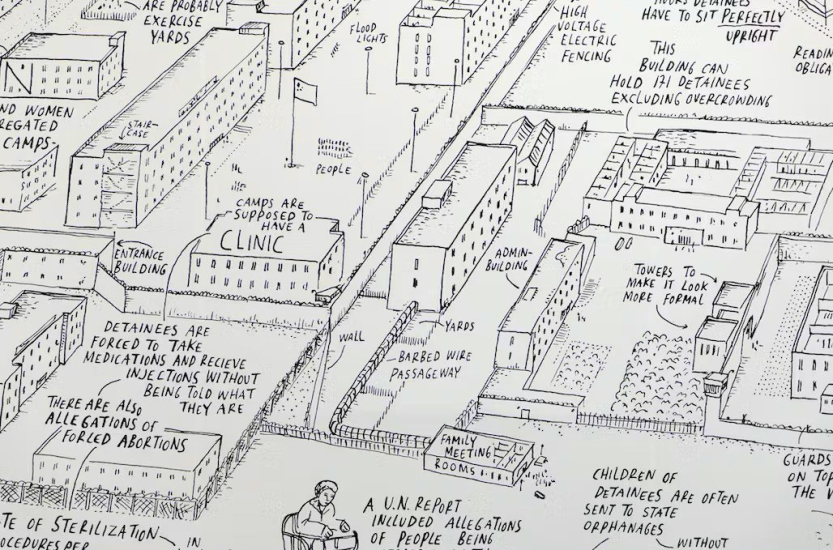 ARE PROBABLY
EXERCISE
YARDS
FLOOD
LIGHTS
HIGH
VOLTAGE
ELECTRIC
FENCING
HOURS DETAINEES
HAVE TO SIT PERFECTLY
UPRIGHT
THIS
BUILDING CAN
HOLD 171 DETAINEES
EXCLUDING OVERCROWDING
READIN
OBLIGA
N
ND WOMEN
REGATED
CAMPS
STAIR-
CASE
PEOPLE
CAMPS ARE
SUPPOSED TO
HAVE A
CLINIC
ENTRANCE
BUILDING
ADMIN-
BUILDING
TOWERS TO
MAKE IT LOOK
MORE FORMAL
YARDS
WALL
BARBED WIRE
PASSAGEWAY
DETAINEES ARE
FORCED TO TAKE
MEDICATIONS AND RECIEVE
INJECTIONS WITHOUT
BEING TOLD WHAT
THEY ARE
THERE ARE ALSO
ALLEGATIONS OF
FORCED ABORTIONS
FAMILY
MEETING
ROOMS
GUARDS
ON TOP
THE W
CHILDREN OF
DETAINEES ARE OFTEN
SENT TO STATE
ORPHANAGES
WITHOUT
A U.N. REPORT
INCLUDED ALLEGATIONS
OF PEOPLE BEING
TE OF STERILIZATION
OCEDURES PER
IN